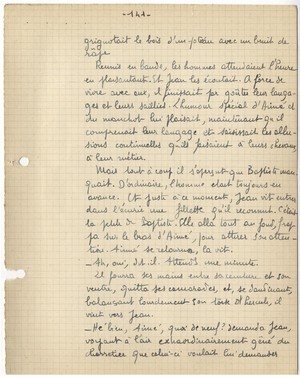 -141-
grignotait le bois d'un poteau avec un bruit de
râpe
Réunis en bande, les hommes attendaient l'heure
en plaisantant. Et Jean les écoutait. A force de
vivre avec eux, il finissait par goûter leur langa-
ge et leurs saillies. L'humour spécial d'Aimé et
du manchot lui plaisait, maintenant qu'il
comprenait leur langage et saisissait les allu-
sions continuelles qu'ils faisaient à leurs chevaux,
à leur métier.
Mais tout à coup il s'aperçut que Baptiste man-
quait. D'ordinaire, l'homme était toujours en
avance. Et juste à ce moment, Jean vit entrer
dans l'écurie une fillette qu'il reconnut. C'était
la petite de Baptiste. Elle alla tout au fond, frap-
pa sur le bras d'Aimé, pour attirer son atten-
tion. Aimé se retourna, la vit.
- Ah, oui, dit-il. Attends une minute.
Il fourra ses mains entre sa ceinture et son
ventre, quitta ses camarades, et, se dandinant,
balançant lourdement son torse d'Hercule, il
vint vers Jean.
- Hé bien, Aimé, quoi de neuf? demanda Jean,
voyant à l'air extraordinairement gêné du
charretier que celui-ci voulait lui demander